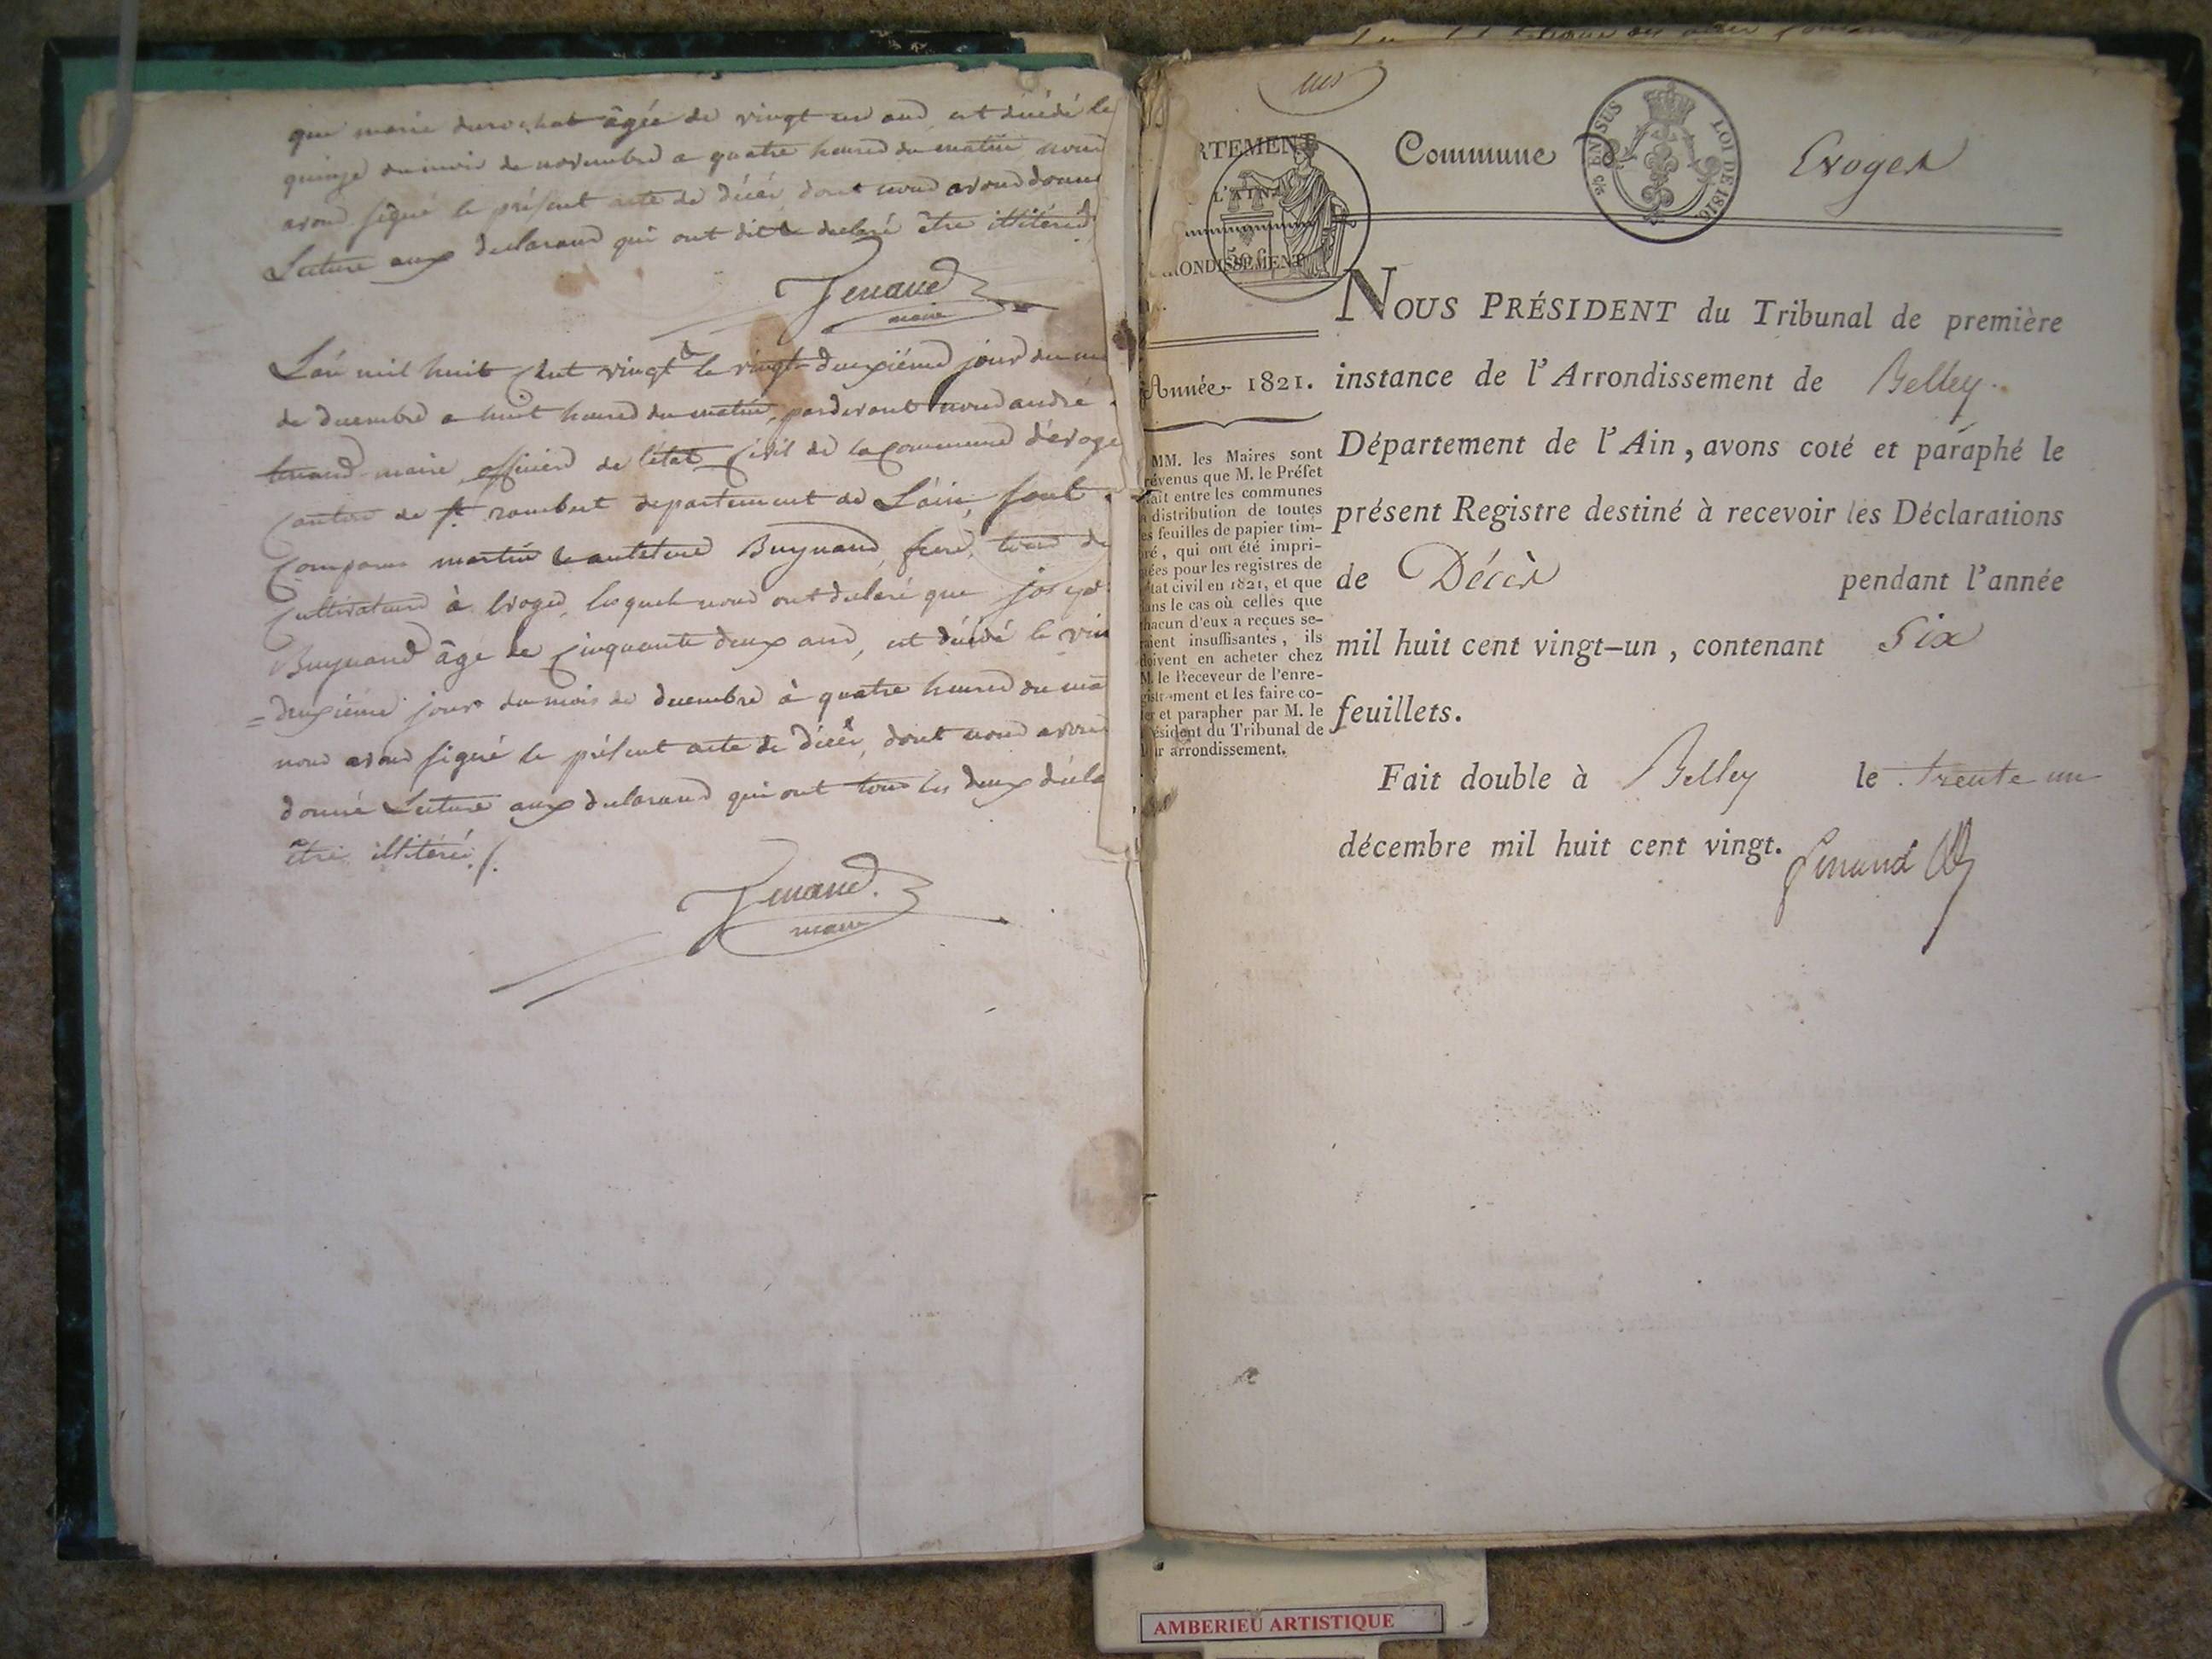 que marie durochat âgée de vingt un ans, est décédé le
quinze du mois de novembre a quatre heures du matin nous
avons signé le présent acte de décès, dont nous avons donné
Lecture aux declarans qui ont dit & declaré être illitérés
Tenand
maire
L'an mil huit cent vingt & le vingt deuxième jour du
de decembre a huit heures du matin, pardevant nous andré
tenand maire, officiers de l'état civil de la commune d'evoge
canton de st rambert departement de L'ain, sont
comparus martin & Buynand, tous
cultivateurs à Evoges, lesquels nous ont declaré que
Buynand âgé de cinquante deux ans, est décédé le
= deuxième jour du mois de decembre à quatre heures du
nous avons signé le présent acte de décès, dont nous avons
donné Lecture aux declarans qui ont tous les deux décla
être illitérés ./.
Tenand
maire
RTEMENT
L'AIN
RONDISSEMENT
Commune
CENSUS
LOI DE 1816
Evoges
NOUS PRÉSIDENT du Tribunal de première
Année 1821.
instance de l'Arrondissement de Belley
Département de l'Ain, avons coté et paraphé le
présent Registre destiné à recevoir les Déclarations
de Décès pendant l'année
mil huit cent vingt-un, contenant Six
feuillets.
Fait double à Belley le trente un
décembre mil huit cent vingt.
MM. les Maires sont
révenus que M. le Préfet
fait entre les communes
distribution de toutes
es feuilles de papier tim-
ré, qui ont été impri-
ées pour les registres de
tat civil en 1821, et que
ans le cas où celles que
hacun d'eux a reçues se-
aient insuffisantes, ils
doivent en acheter chez
M. le Receveur de l'enre-
gistrement et les faire co-
er et parapher par M. le
ésident du Tribunal de
r arrondissement.
AMBERIEU ARTISTIQUE